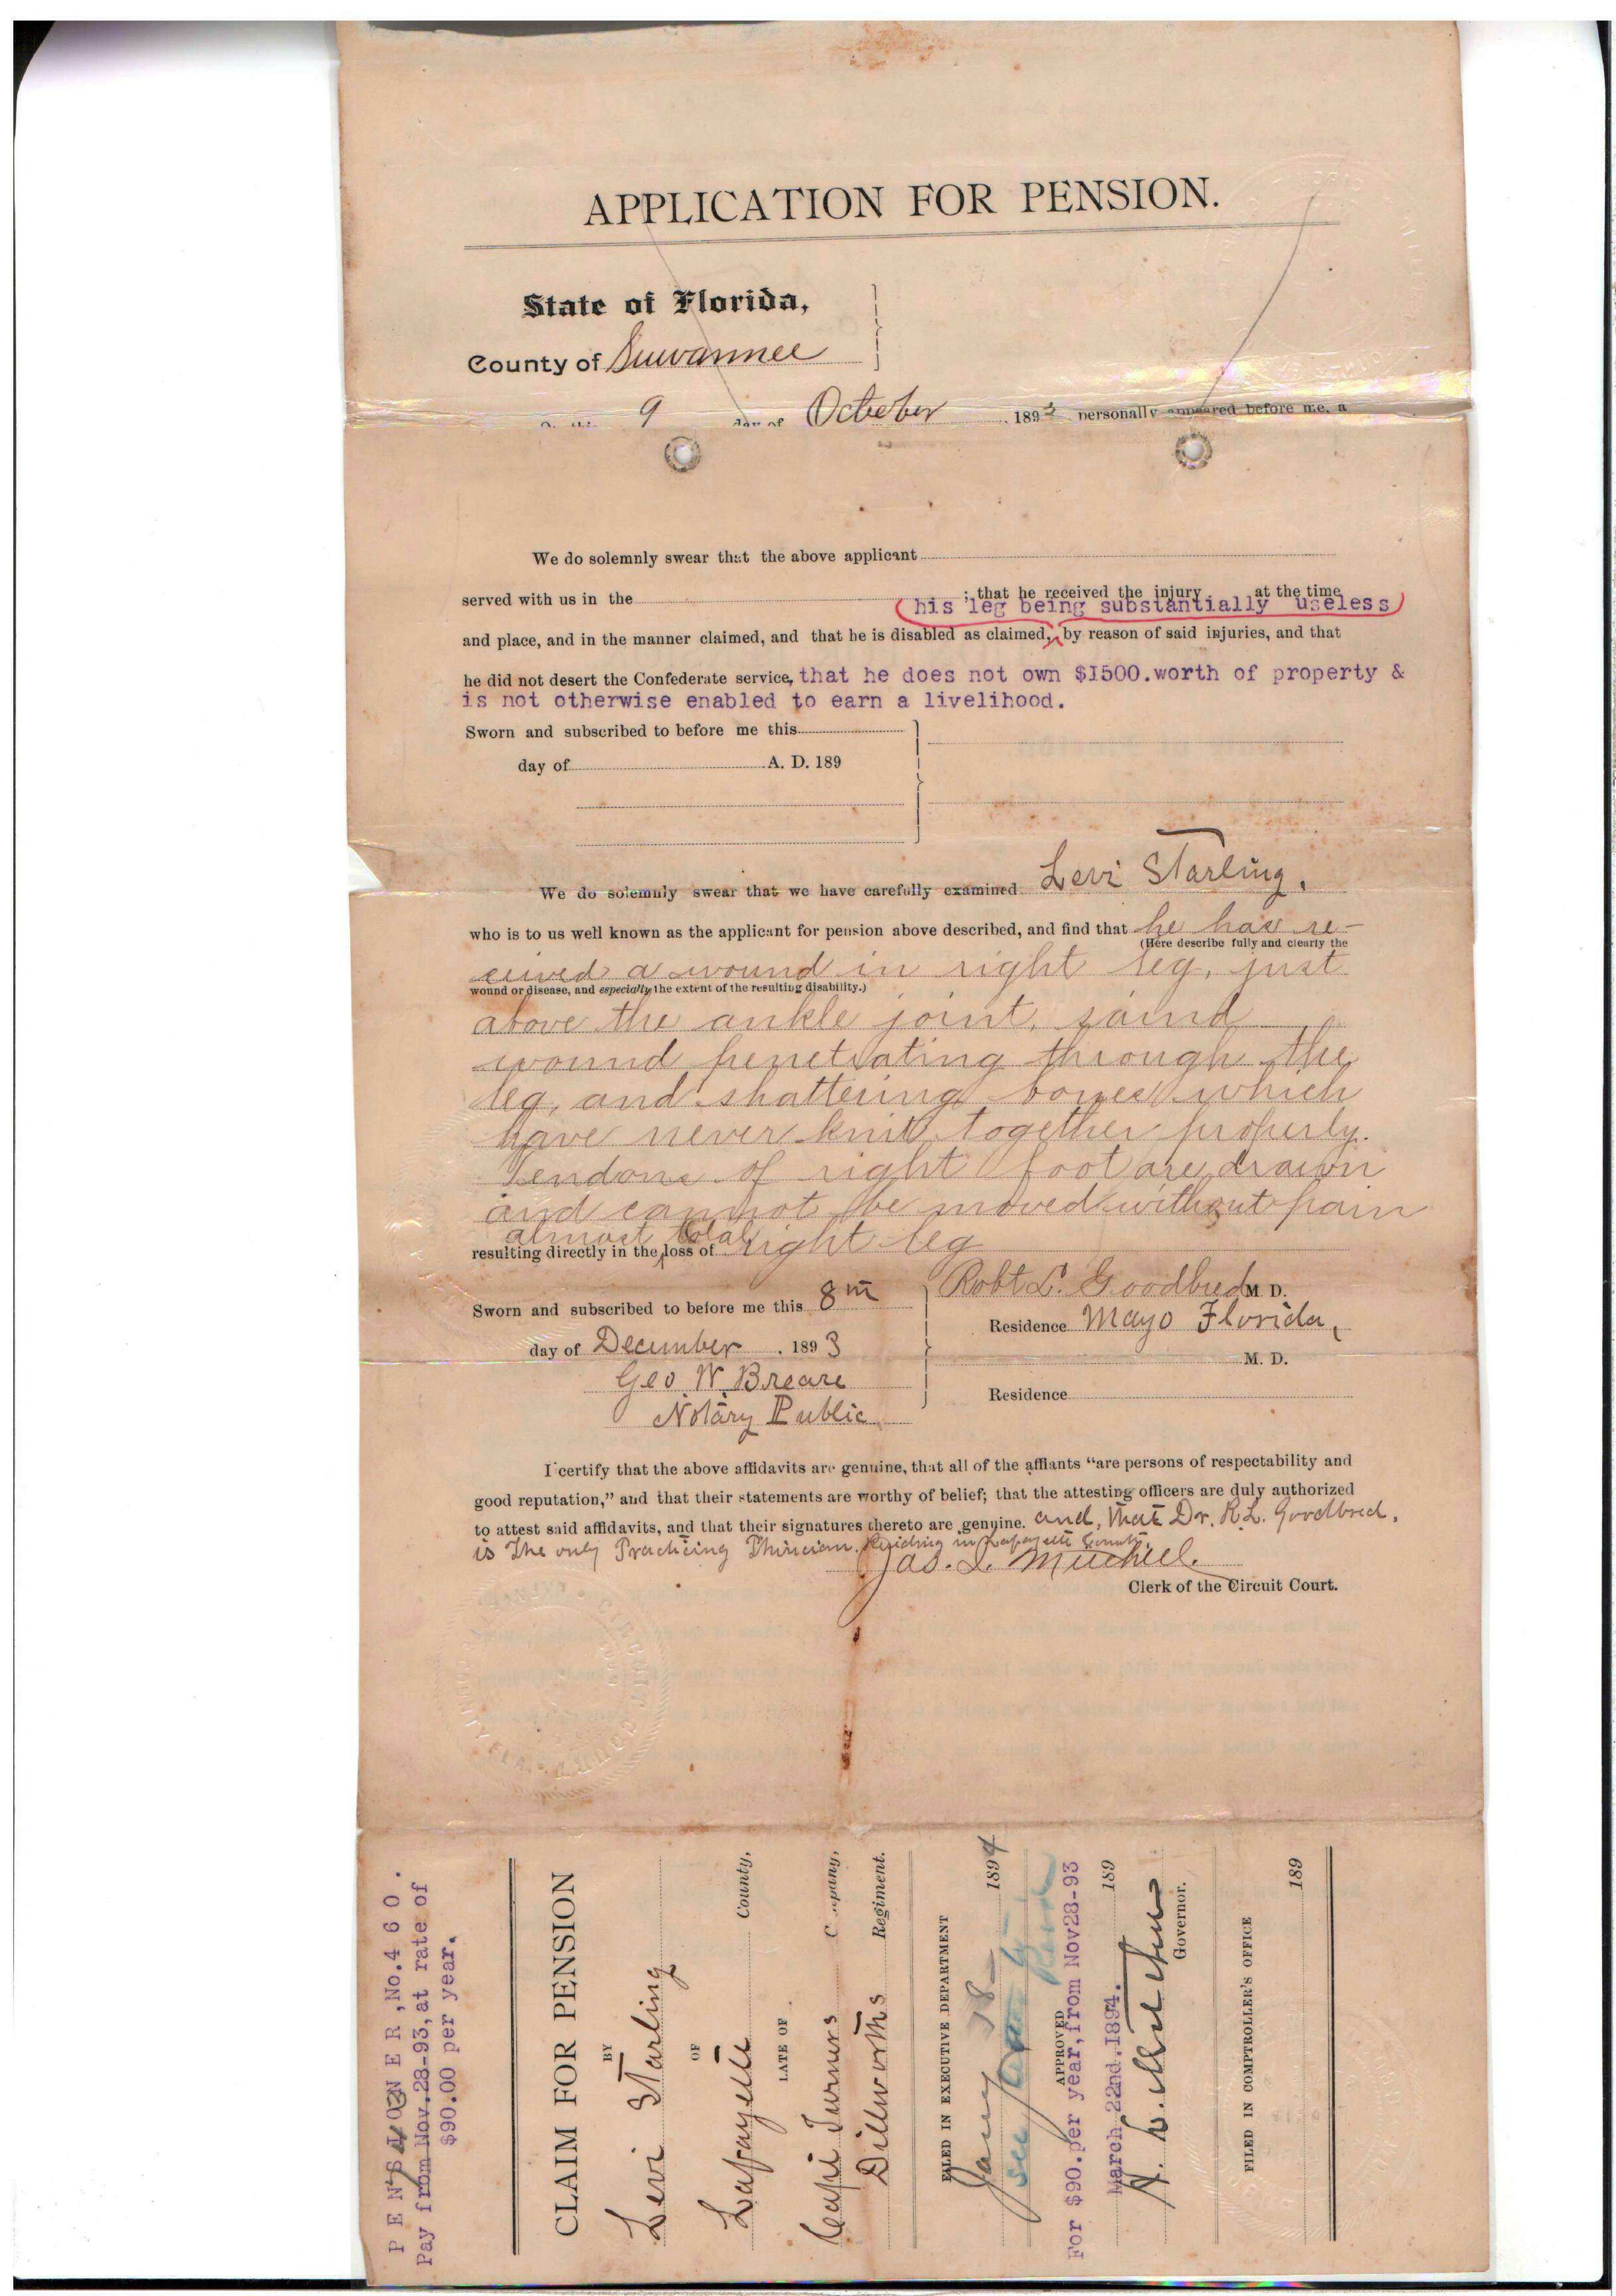 APPLICATION FOR PENSION.
State of Florida,
County of Suwannee
9 day of October 189 personally appeared before me, a
We do solemnly swear that the above applicant
served with us in the ; that he received the injury at the time
(his leg being substantially useless)
and place, and in the manner claimed, and that he is disabled as claimed, by reason of said injuries, and that
he did not desert the Confederate service, that he does not own $1500.worth of property &
is not otherwise enabled to earn a livelihood.
Sworn and subscribed to before me this
day of A. D. 189
We do solemnly swear that we have carefully examined Levi Starling.
who is to us well known as the applicant for pension above described, and find that he has re-
(Here describe fully and clearly the
ceived a wound in right leg, just
wound or disease, and especially the extent of the resulting disability.)
above the ankle joint, saind
wound penetrating through the
leg, and shattering bones which
have never knit together properly.
Tendons of right foot are drawn
and cannot be moved without pain
almost total
resulting directly in the loss of right leg
Sworn and subscribed to before me this 8th
Robt L. Goodbred M. D.
Residence Mayo Florida,
day of December 1893
M. D.
Geo W. Breare
Residence
Notary Public
I certify that the above affidavits are genuine, that all of the affiants "are persons of respectability and
good reputation," and that their statements are worthy of belief; that the attesting officers are duly authorized
to attest said affidavits, and that their signatures thereto are genuine. and, that Dr. R.L. Goodbred,
is the only Practicing Phisician. Residing in Lafayette County.
Jas. L. Mitchell.
Clerk of the Circuit Court.
P E N S I O N E R ,No.4 6 0 .
Pay from Nov.28-93,at rate of
$90.00 per year.
CLAIM FOR PENSION
BY
Levi Starling
OF
Lafayette County,
LATE OF
Capt Turners Company,
Dillworths Regiment.
FILED IN EXECUTIVE DEPARTMENT
Jany 18 1894
APPROVED
For $90.per year,from Nov28-93
March 22nd.1894. 189
Governor.
FILED IN COMPTROLLER'S OFFICE
189